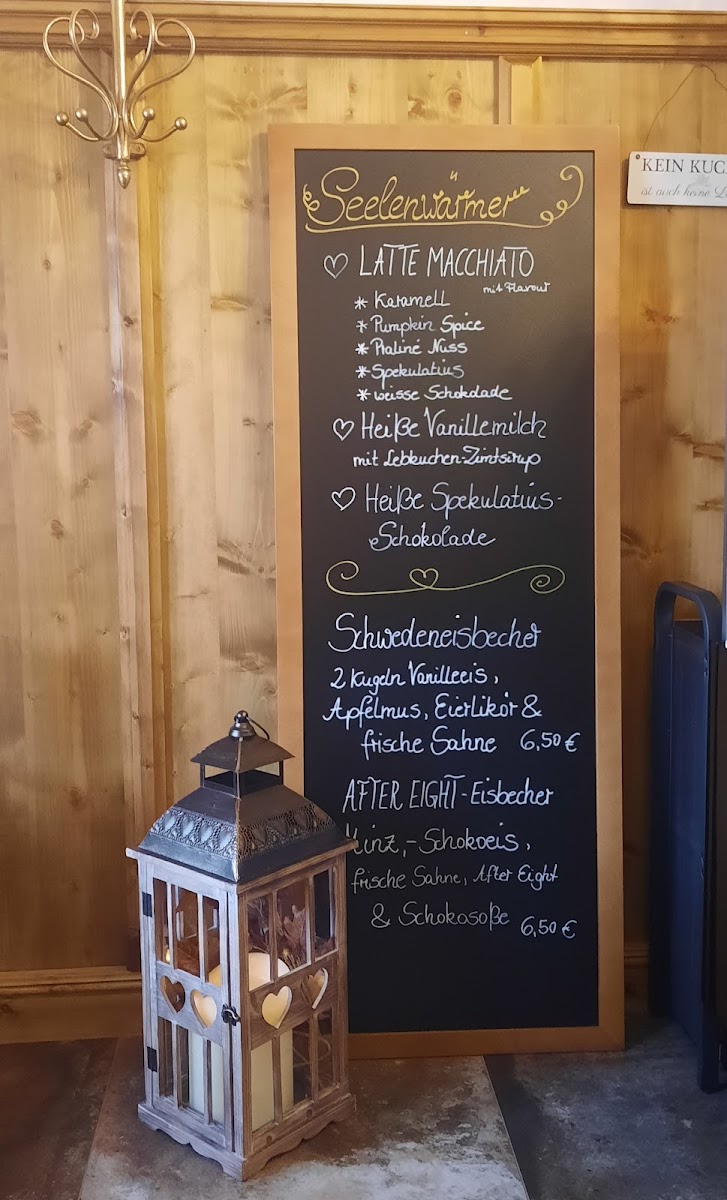 Seelenwärmer
LATTE MACCHIATO
mit Flavour
* Karamell
* Pumpkin Spice
* Praliné Nuss
* Spekulatius
* weisse Schokolade
Heiße Vanillemilch
mit Lebkuchen-Zimtsirup
Heiße Spekulatius-
Schokolade
Schwedeneisbecher
2 Kugeln Vanilleeis,
Apfelmus, Eierlikör &
frische Sahne 6,50 €
AFTER EIGHT-Eisbecher
Minz,-Schokoeis,
frische Sahne, After Eight
& Schokosoße 6,50 €
KEIN KUC
ist auch keine